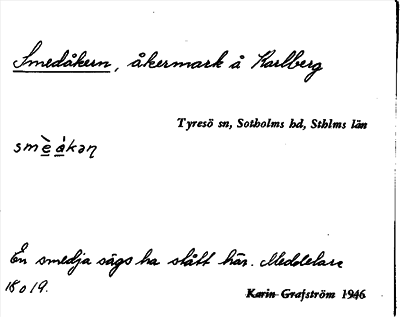 Smedåkern, åkermark å Karlberg
Tyresö sn, Sotholms hd, Sthlms län
smè ákəƞ
En smedja sägs ha stått här. Meddelare
18 o 19.
Karin Grafström 1946